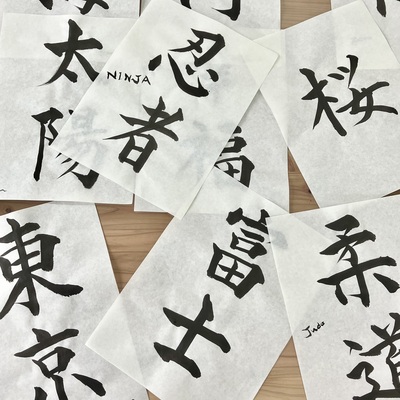 太陽
忍者
NINJA
福
桜
東京
富士
柔道
Judo